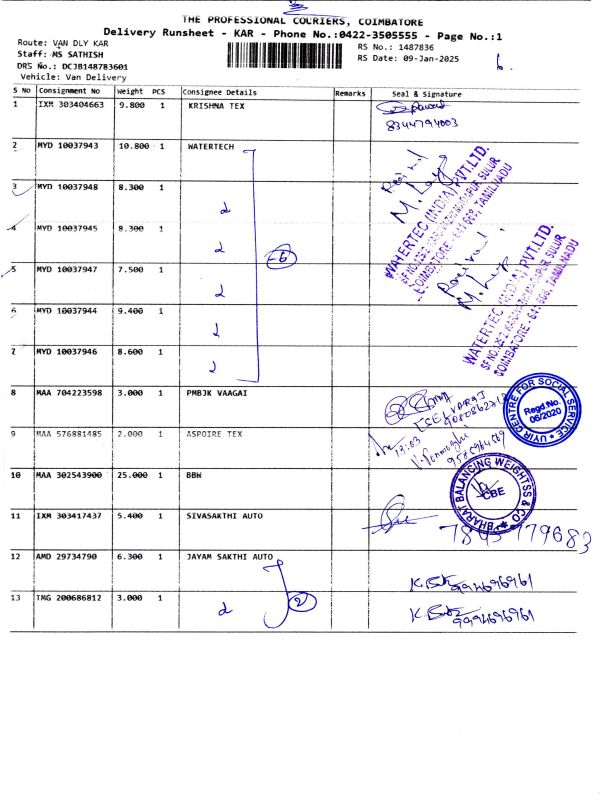 THE PROFESSIONAL COURIERS, COIMBATORE
Delivery Runsheet - KAR - Phone No.:0422-3505555 - Page No.:1
Route: VAN DLY KAR
RS No.: 1487836
Staff: MS SATHISH
RS Date: 09-Jan-2025
6.
DRS No.: DCJB148783601
Vehicle: Van Delivery
S No Consignment No Weight PCS Consignee Details Remarks Seal & Signature
1 IXM 303404663 9.800 1 KRISHNA TEX
8344794003
2 MYD 10037943 10.800 1 WATERTECH
3 MYD 10037948 8.300 1
4 MYD 10037945 8.300 1
6
5 MYD 10037947 7.500 1
6 MYD 10037944 9.400 1
7 MYD 10037946 8.600 1
WATERTEC (INDIA) PVT.LTD.
COIMBATORE - 641 669, TAMILNADU
WATERTEC (INDIA) PVT.LTD.
COIMBATORE - 641 669, TAMILNADU
8 MAA 704223598 3.000 1 PMBJK VAAGAI
UYIR CENTRE FOR SOCIAL SERVICE
Regd.No.
06/2020
9 MAA 576881485 2.000 1 ASPOIRE TEX
13:03
10 MAA 302543900 25.000 1 BBW
BHARAT BALANCING WEIGHTSS & CO
CBE
11 IXM 303417437 5.400 1 SIVASAKTHI AUTO
12 AMD 29734790 6.300 1 JAYAM SAKTHI AUTO
9994696961
2
13 TMG 200686812 3.000 1
9994696961